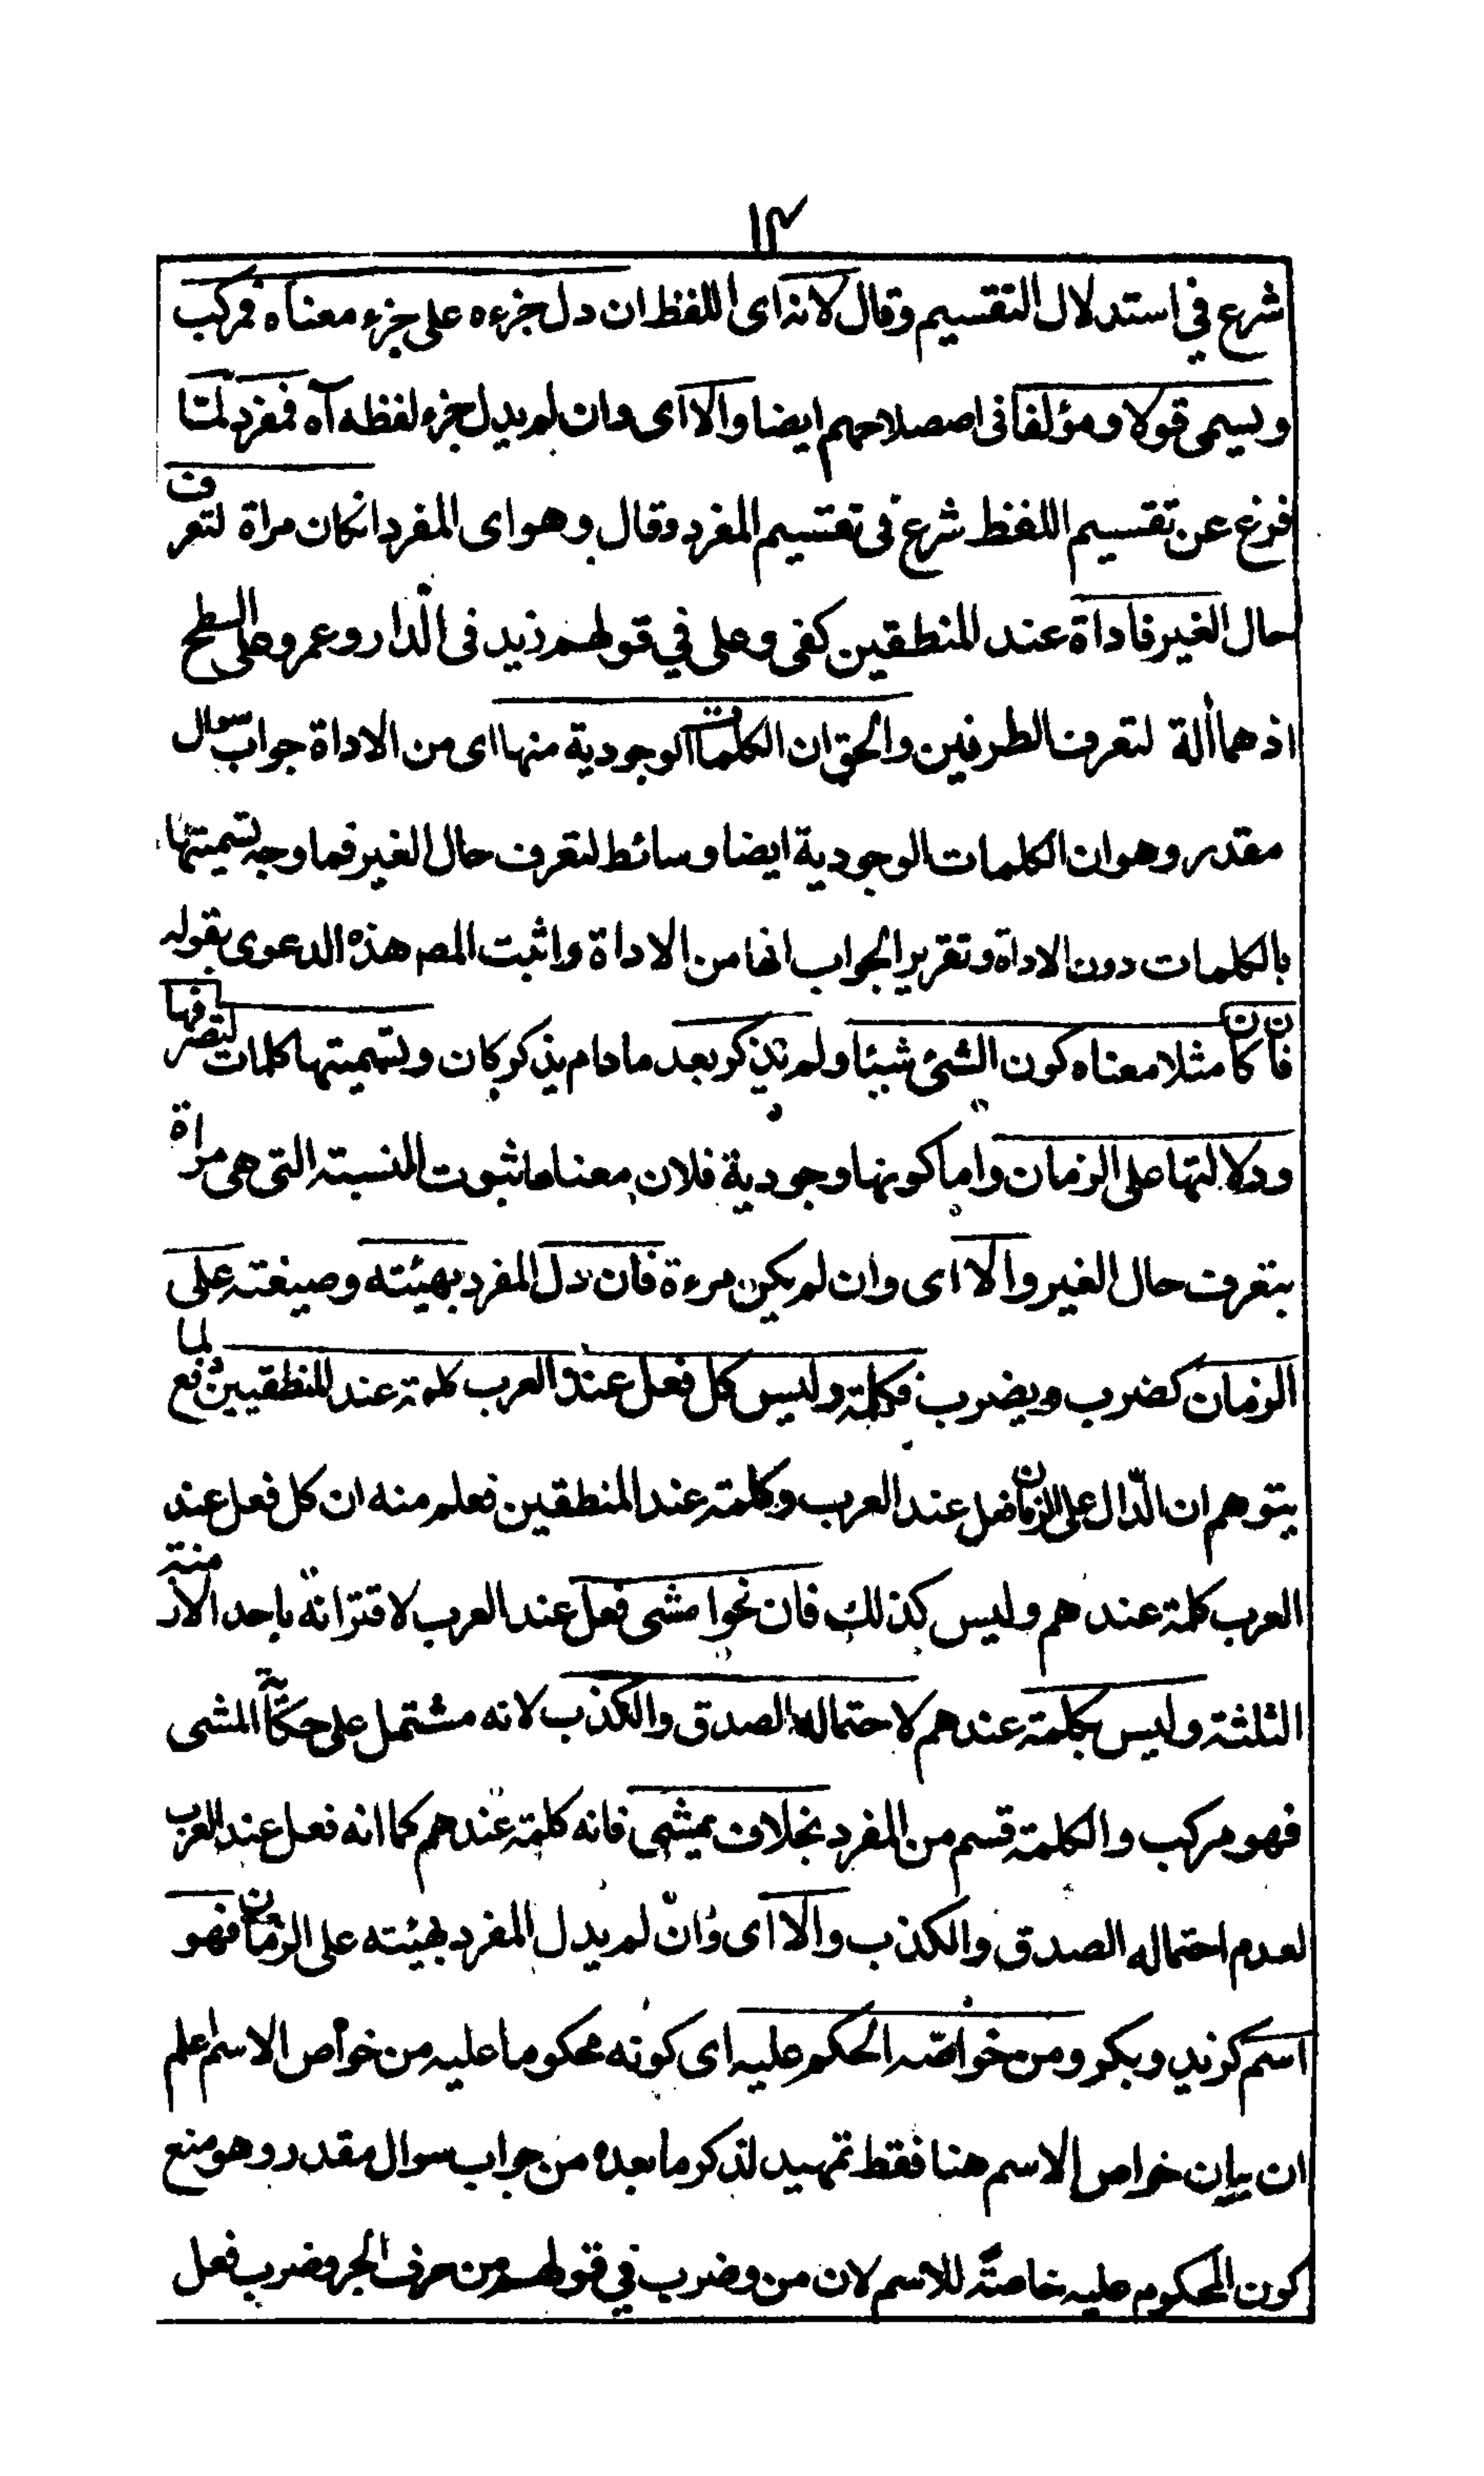 ١٣
شرع في استدلال التقسيم وقال لانه اى اللفظ ان دل جزءه على جزء معناه فمركب
ويسمى قولا ومؤلفا فى اصصلاحهم ايضا والا اى وان لم يدل جزء لفظه آه فمفرد لمتا
فرغ عن تقسيم اللفظ شرع فى تقسيم المفرد وقال وهو اى المفرد انكان مراة لتعرف
حال الغير فاداة عند المنطقين كفى وعلى في قولهم زيد فى الدار وعمرو على السطح
اذ هما ألة لتعرف الطرفين والحق ان الكلمات الوجودية منها اى من الاداة جواب سوال
مقدر وهو ان الكلمات الوجودية ايضا وسائط لتعرف حال الغير فما وجه تسميتها
بالكلمات دون الاداة وتقرير الجواب انها من الاداة واثبت المصر هذه الدعوى بقوله
فان كان مثلا معناه كون الشئ شيئا ولم يذكر بعد مادام يذكر كان وتسميتها كلمات لتصرفها
ودلالتها على الزمان واما كونها وجودية فلان معناها ثبوت النسبة التى هى مراة
بتعرف حال الغير والا اى وان لم يكن مرءة فان دل المفرد بهيئته وصيغته على
الزمان كضرب ويضرب فكلمة وليس كل فعل عند العرب كلمة عند المنطقيين لما
يتوهم ان الدّال على الزمان فعل عند العرب وكلمة عند المنطقين فعلم منه ان كل فعل عند
العرب كلمة عندهم وليس كذلك فان نحو امشى فعل عند العرب لاقترانه باحد الازمنة
الثلثة وليس بكلمة عندهم لاحتماله الصدق والكذب لانه مشتمل على حكاية المشى
فهو مركب والكلمة قسم من المفرد بخلاف يمشى فانه كلمة عندهم كما انه فعل عند العرب
لعدم احتماله الصدق والكذب والا اى وان لم يدل المفرد بهيئته على الزمان فهو
اسم كزيد وبكر ومن خواصّه الحكم عليه اى كونه محكوما عليه من خواص الاسم اعلم
ان بيان خواص الاسم هنا فقط تمهيد لذكر ما بعده من جواب سوال مقدر وهو منع
كون المحكوم عليه خاصّة للاسم لان من وضرب في قولهم من حرف الجر وضرب فعل